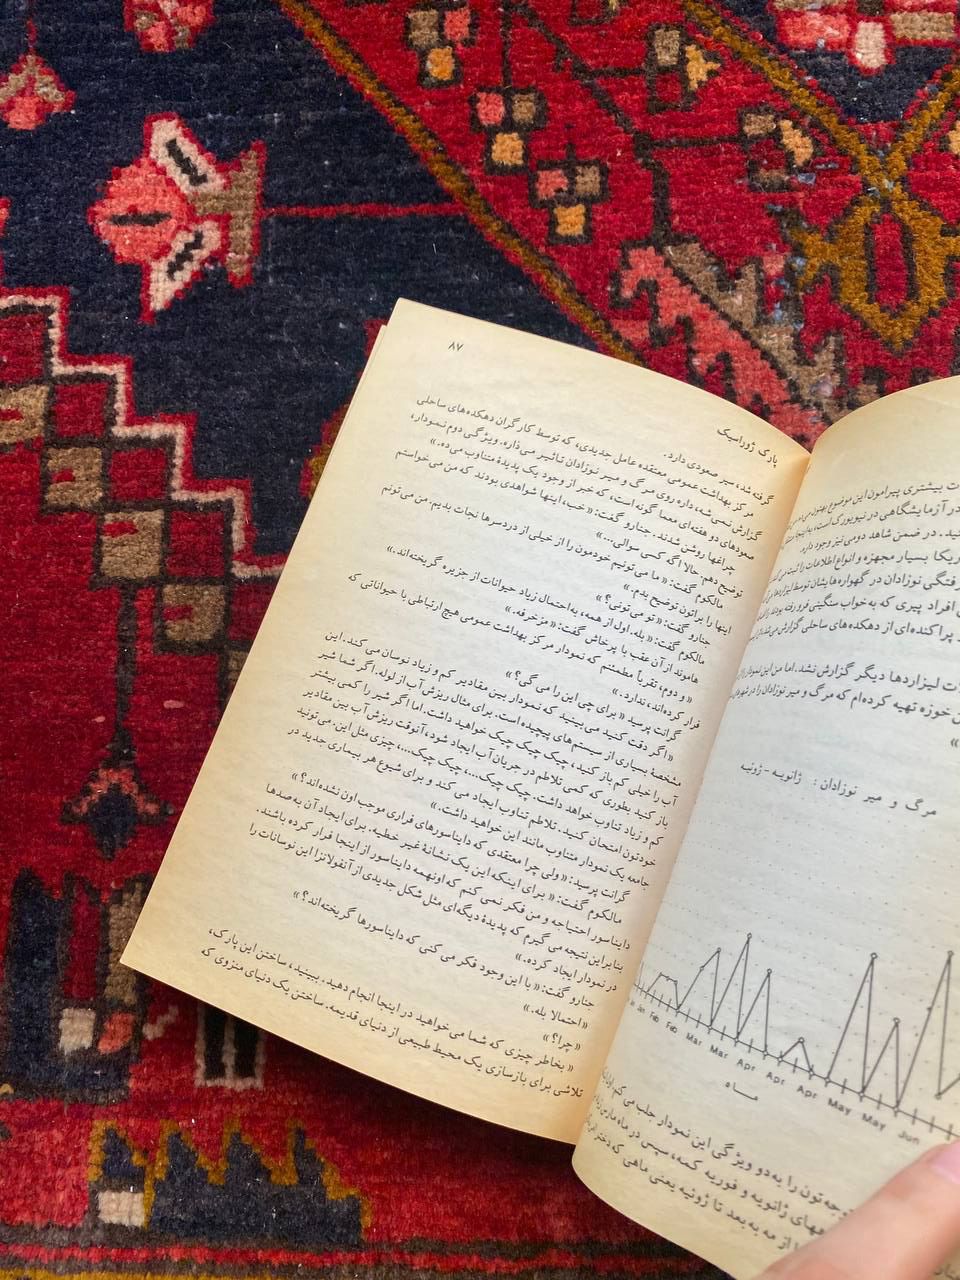 ت بیشتری پیرامون این موضوع بهتون می‌ده
در آزمایشگاهی در نیویورک است، به اینجا
نید. در ضمن شاهد دومی نیز وجود دارد.
ریکا بسیار مجهزه و انواع اطلاعات را ثبت می‌کند
فتگی نوزادان در گهواره‌هایشان توسط لیزاردها
افراد پیری که به خواب سنگینی فرو رفته بودند
پراکنده‌ای از دهکده‌های ساحلی گزارش می‌شد
لات لیزاردها دیگر گزارش نشد. اما من این نمودار را
ن حوزه تهیه کرده‌ام که مرگ و میر نوزادان را در شهرهای
»
مرگ و میر نوزادان: ژانویه - ژوئیه
Jan Feb Feb Mar Mar Apr Apr Apr May May Jun
ماه
جه‌تون را به دو ویژگی این نمودار جلب می‌کنم. اول
ههای ژانویه و فوریه کمه، سپس در ماه مارس
ا از مه به بعد تا ژوئیه یعنی ماهی که دختر
پارک ژوراسیک
۸۷
گرفته شد، سیر صعودی دارد.
مرکز بهداشت عمومی معتقده عامل جدیدی، که توسط کارگران دهکده‌های ساحلی
گزارش نمی‌شه داره روی مرگ و میر نوزادان تاثیر می‌ذاره. ویژگی دوم نمودار،
صعودهای دو هفته‌ای معما گونه است، که خبر از وجود یک پدیدهٔ متناوب می‌ده.»
چراغها روشن شدند. جنارو گفت: «خب، اینها شواهدی بودند که من می‌خواستم
توضیح دهم حالا اگه کسی سوالی...»
مالکوم گفت: «ما می‌تونیم خودمون را از خیلی از دردسرها نجات بدیم. من می‌تونم
اینها را براتون توضیح بدم.»
جنارو گفت: «تو می‌تونی؟»
مالکوم گفت: «بله. اول از همه، به احتمال زیاد حیوانات از جزیره گریخته‌اند.»
هاموند از آن عقب با پرخاش گفت: «مزخرفه.»
«و دوم، تقریباً مطمئنم که نمودار مرکز بهداشت عمومی هیچ ارتباطی با حیواناتی که
فرار کرده‌اند، ندارد.»
گرانت پرسید «برای چی این را می‌گی؟»
«اگر دقت کنید می‌بینید که نمودار بین مقادیر کم و زیاد نوسان می‌کند. این
مشخصهٔ بسیاری از سیستم‌های پیچیده است. برای مثال ریزش آب از لوله. اگر شما شیر
آب را خیلی کم باز کنید، چیک چیک خواهید داشت. اما اگر شیر را کمی بیشتر
باز کنید بطوری که کمی تلاطم در جریان آب ایجاد شود، آنوقت ریزش آب بین مقادیر
کم و زیاد تناوب خواهد داشت. چیک چیک...، چیک چیک...، چیزی مثل این. می‌تونید
خودتون امتحان کنید. تلاطم تناوب ایجاد می‌کند و برای شیوع هر بیماری جدید در
جامعه یک نمودار متناوب مانند این خواهید داشت.»
گرانت پرسید: «ولی چرا معتقدی که دایناسورهای فراری موجب اون نشده‌اند؟»
مالکوم گفت: «برای اینکه این یک نشانهٔ غیر خطیه. برای ایجاد آن به صدها
دایناسور احتیاجه و من فکر نمی کنم که اونهمه دایناسور از اینجا فرار کرده باشند.
بنابراین نتیجه می‌گیرم که پدیدهٔ دیگه‌ای مثل شکل جدیدی از آنفولانزا این نوسانات را
در نمودار ایجاد کرده.»
جنارو گفت: «با این وجود فکر می‌کنی که دایناسورها گریخته‌اند؟»
«احتمالا بله.»
«چرا؟»
«بخاطر چیزی که شما می‌خواهید در اینجا انجام دهید. ببینید، ساختن این پارک،
تلاشی برای بازسازی یک محیط طبیعی از دنیای قدیمه. ساختن یک دنیای منزوی که